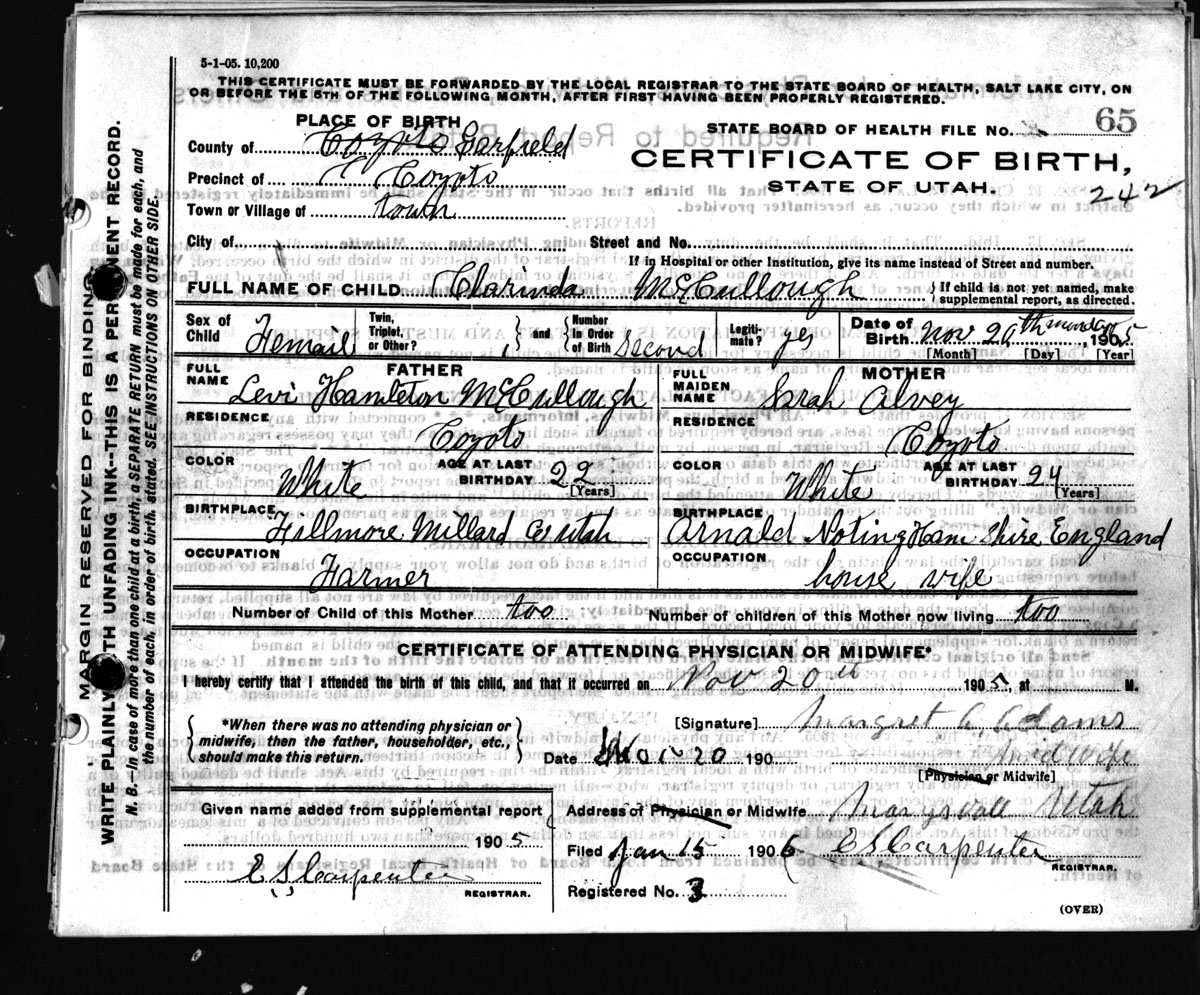 5-1-05. 10,200
THIS CERTIFICATE MUST BE FORWARDED BY THE LOCAL REGISTRAR TO THE STATE BOARD OF HEALTH, SALT LAKE CITY, ON
OR BEFORE THE 5TH OF THE FOLLOWING MONTH, AFTER FIRST HAVING BEEN PROPERLY REGISTERED.
PLACE OF BIRTH
STATE BOARD OF HEALTH FILE No. 65
County of Coyoto Garfield
CERTIFICATE OF BIRTH,
Precinct of Coyoto
STATE OF UTAH.
242
Town or Village of town
City of Street and No.
If in Hospital or other Institution, give its name instead of Street and number.
FULL NAME OF CHILD Clarinda McCullough { If child is not yet named, make supplemental report, as directed.
Sex of Child Femail Twin, Triplet, or Other? } and { Number in Order of Birth Second Legitimate? yes Date of Birth Nov 20th munday, 1905
[Month] [Day] [Year]
FATHER
MOTHER
FULL NAME Levi Hamleton McCullough
FULL MAIDEN NAME Sarah Alvey
RESIDENCE Coyoto
RESIDENCE Coyoto
COLOR White AGE AT LAST BIRTHDAY 22 [Years]
COLOR White AGE AT LAST BIRTHDAY 24 [Years]
BIRTHPLACE Fillmore Millard Co utah
BIRTHPLACE Arnald NotingHam Shire England
OCCUPATION Farmer
OCCUPATION house wife
Number of Child of this Mother too Number of children of this Mother now living too
CERTIFICATE OF ATTENDING PHYSICIAN OR MIDWIFE*
I hereby certify that I attended the birth of this child, and that it occurred on Nov 20th 1905, at M.
*When there was no attending physician or midwife, then the father, householder, etc., should make this return.
[Signature] Margret A Adams
Date 20 190 midwife
[Physician or Midwife]
Given name added from supplemental report
1905
E S Carpenter
REGISTRAR.
Address of Physician or Midwife Marysvall Utah
Filed Jan 15 1906 E S Carpenter
REGISTRAR.
Registered No. 3
(OVER)
MARGIN RESERVED FOR BINDING
WRITE PLAINLY WITH UNFADING INK--THIS IS A PERMANENT RECORD.
N. B.—In case of more than one child at a birth, a SEPARATE RETURN must be made for each, and
the number of each, in order of birth, stated. SEE INSTRUCTIONS ON OTHER SIDE.